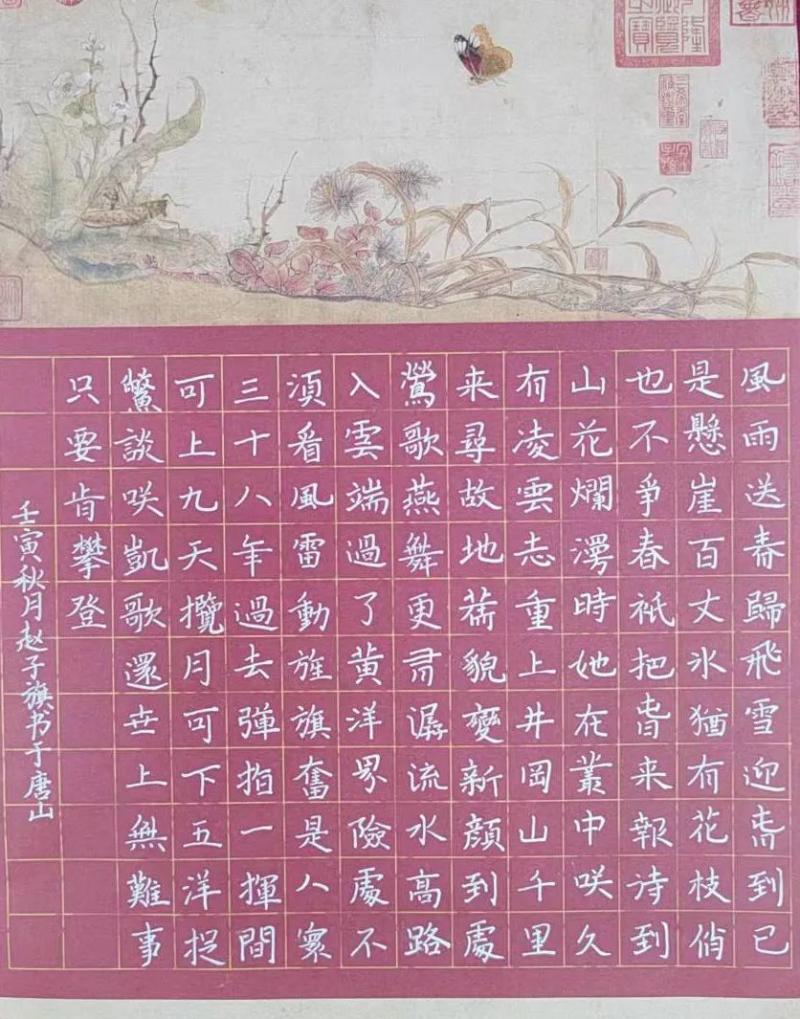 風雨送春歸飛雪迎春到已
是懸崖百丈冰猶有花枝俏
也不爭春衹把春来報诗到
山花爛漫時她在叢中咲久
有凌雲志重上井岡山千里
来尋故地舊貌變新顔到處
鶯歌燕舞更有潺流水高路
入雲端過了黄洋界險處不
須看風雷動旌旗奮是人寰
三十八年過去彈指一揮間
可上九天攬月可下五洋捉
鱉談咲凱歌還世上無難事
只要肯攀登
壬寅秋月赵子旗书于唐山